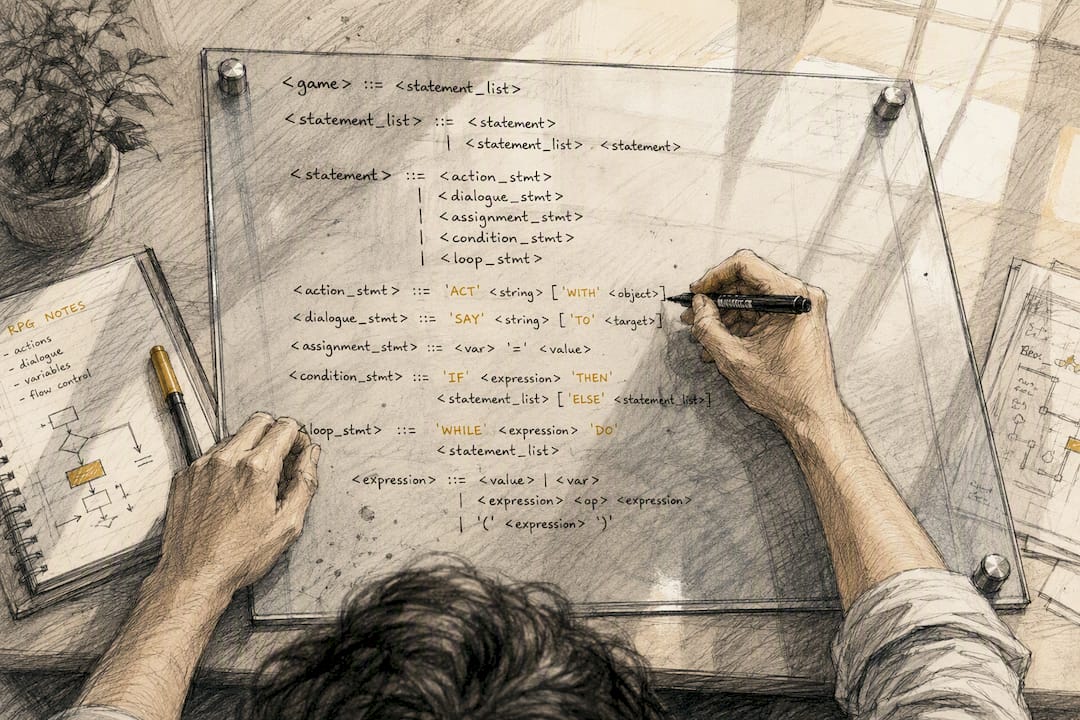 <game> ::= <statement_list>
<statement_list> ::= <statement>
| <statement_list> <statement>
<statement> ::= <action_stmt>
| <dialogue_stmt>
| <assignment_stmt>
| <condition_stmt>
| <loop_stmt>
<action_stmt> ::= 'ACT' <string> ['WITH' <object>]
<dialogue_stmt> ::= 'SAY' <string> ['TO' <target>]
<assignment_stmt> ::= <var> '=' <value>
<condition_stmt> ::= 'IF' <expression> 'THEN'
<statement_list> ['ELSE' <statement_list>]
<loop_stmt> ::= 'WHILE' <expression> 'DO'
<statement_list>
<expression> ::= <value> | <var>
| <expression> <op> <expression>
| '(' <expression> ')'
RPG NOTES
- actions
- dialogue
- variables
- flow control